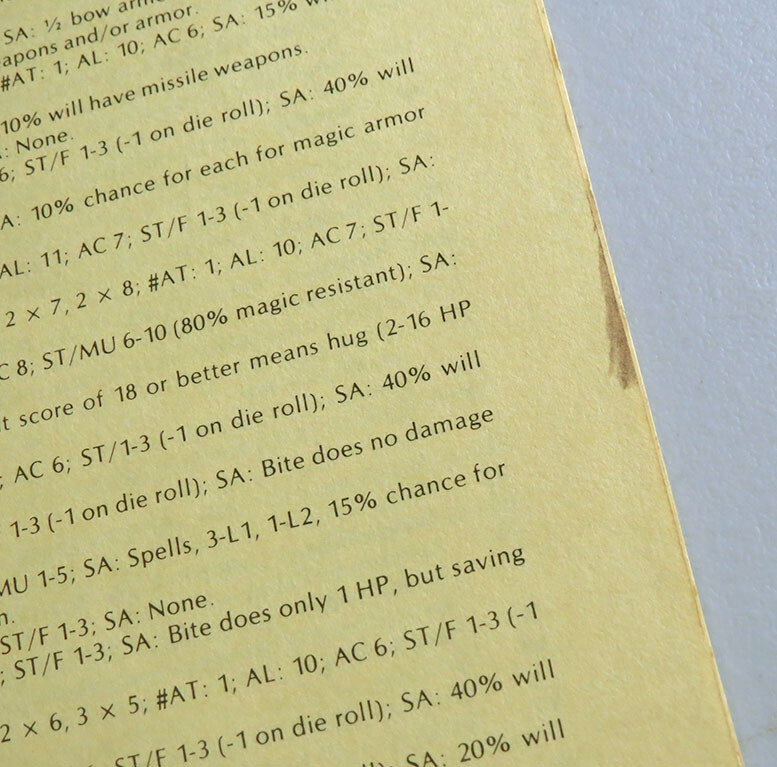 SA: ½ bow
apons and/or armor.
#AT: 1; AL: 10; AC 6; SA: 15%
10% will have missile weapons.
: None.
6; ST/F 1-3 (-1 on die roll); SA: 40% will
A: 10% chance for each for magic armor
AL: 11; AC 7; ST/F 1-3 (-1 on die roll); SA:
2 × 7, 2 × 8; #AT: 1; AL: 10; AC 7; ST/F 1-
C 8; ST/MU 6-10 (80% magic resistant); SA:
t score of 18 or better means hug (2-16 HP
; AC 6; ST/1-3 (-1 on die roll); SA: 40% will
1-3 (-1 on die roll); SA: Bite does no damage
MU 1-5; SA: Spells, 3-L1, 1-L2, 15% chance for
n.
ST/F 1-3; SA: None.
; ST/F 1-3; SA: Bite does only 1 HP, but saving
2 × 6, 3 × 5; #AT: 1; AL: 10; AC 6; ST/F 1-3 (-1
ST/F 1-3 (-1 on die roll); SA: 40% will
SA: 20% will